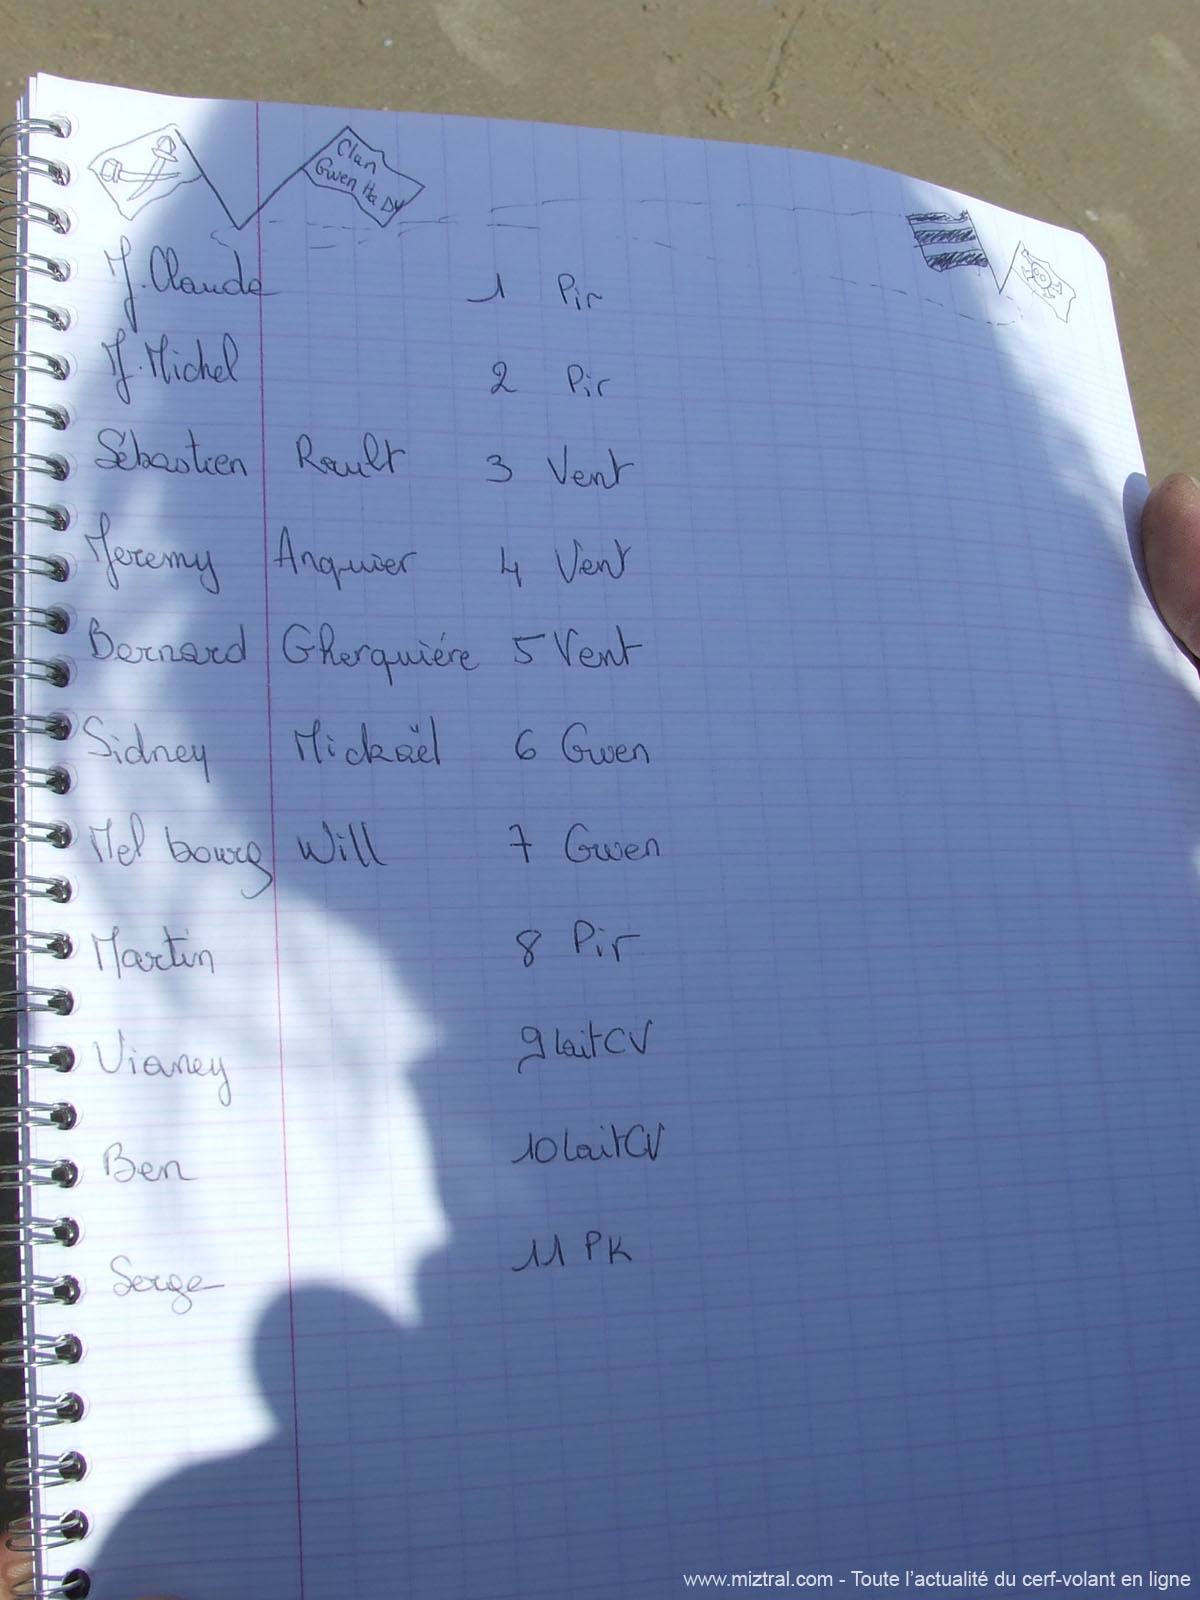 Clan
Gwen Ha Du
J. Claude 1 Pir
J. Michel 2 Pir
Sébastien Rault 3 Vent
Jeremy Anquier 4 Vent
Bernard Gherquiére 5 Vent
Sidney Mickaël 6 Gwen
Mel bourg Will 7 Gwen
Martin 8 Pir
Vianey 9 lait CV
Ben 10 lait CV
Serge 11 PK
www.miztral.com - Toute l'actualité du cerf-volant en ligne